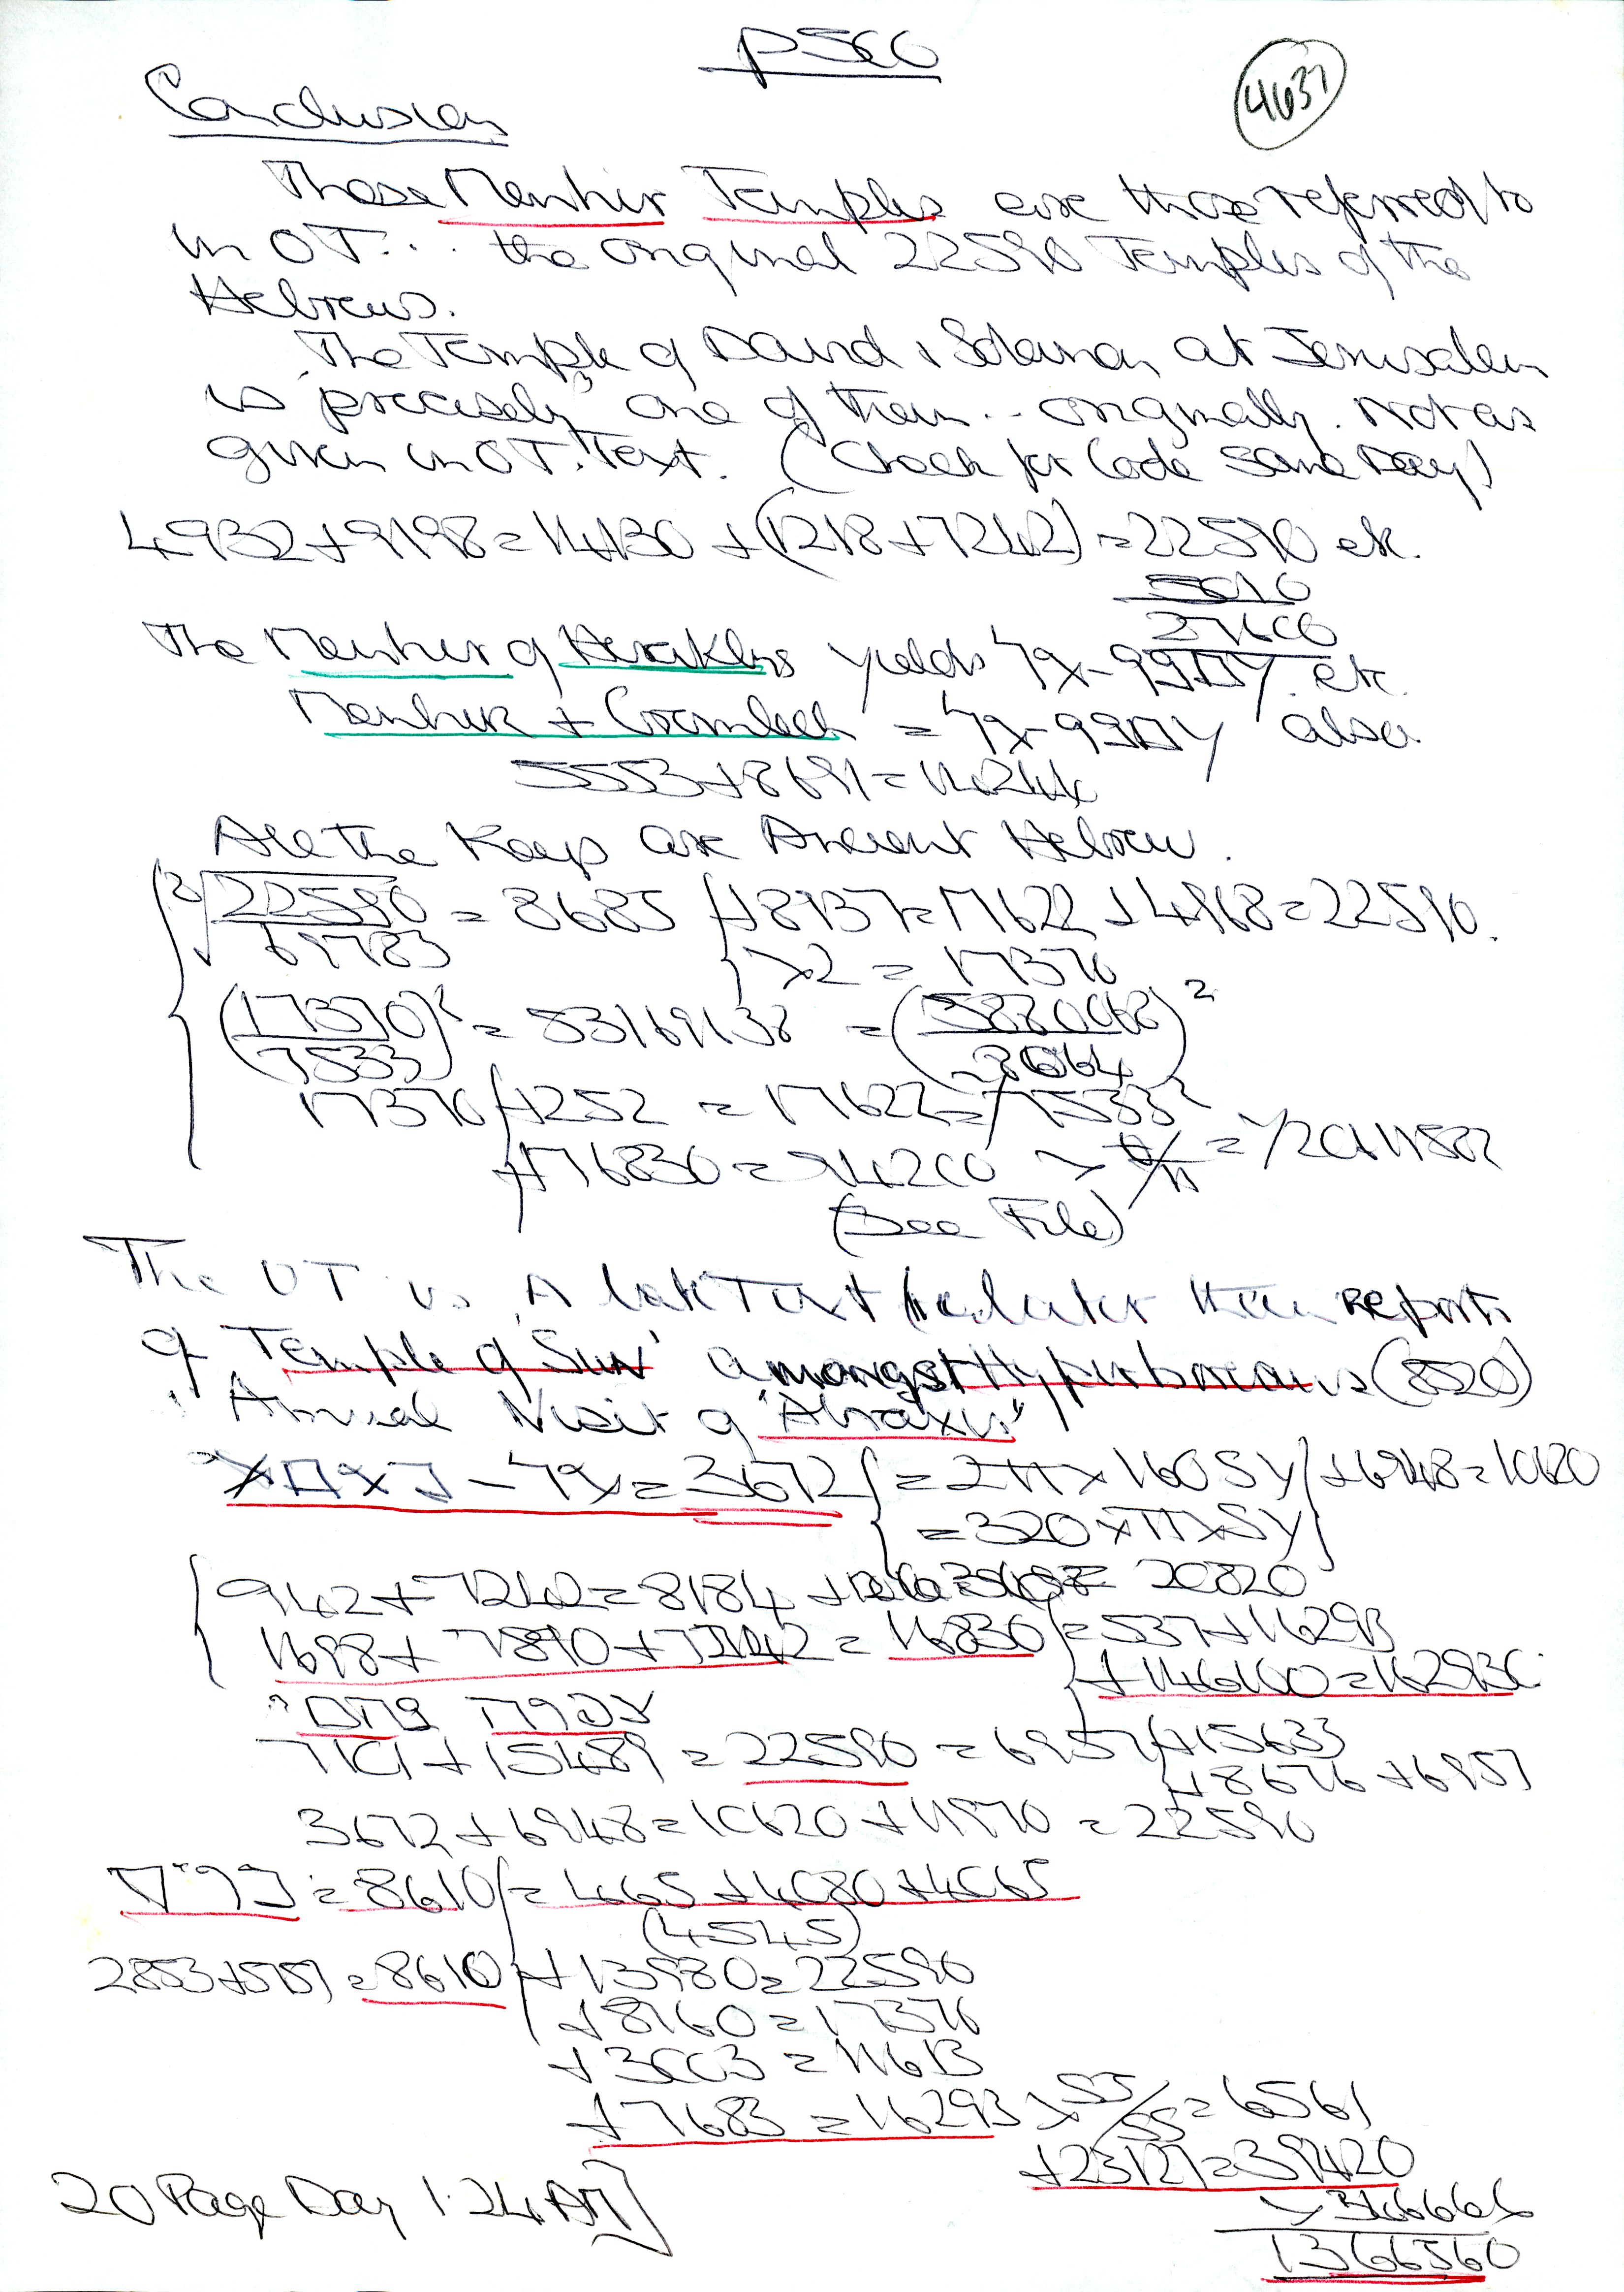 p560
4637
Conclusion
These Menhir Temples are those referred to
in OT... the original 22590 Temples of the
Hebrews.
The Temple of David & Solomon at Jerusalem
is "precisely" one of them... originally. Not as
given in OT. Text. (Check for Code same Day)
4932+9198=14130+(1218+7242)=22590 etc.
5010
27600
The Menhir of Herakles yields etc.
Menhir + Cromlech = also
5553+8691=14244
All the Keys are Ancient Hebrew.
3√22590/69783 = 8685 {+8937=17622+4968=22590.
x2 = 17370
(17370/7533)² = 53169138 = ( )²
17370 {+252 = 17622=7533²
+76830=94200
(See File)
The OT is A late Text (ie later than reports
of Temple of Sun' amongst Hyperboreans (8520)
Annual Visit of "Abraxis"
=3672 {=2π×160SY} +6948=10620
=320×π×SY
942+7242=8184 = 20820
1698+7890+7242=16830 {=537+16293
+146100=162930
7101+15489=22590=6957 {+15633
+8676+6957
3672+6948=10620+11970=22590
=8610 {=465+4080+4065
(4545)
2853+5757=8610 {+13980=22590
+8760=17370
+3003=11613
+7683=16293 =6561
+23127=39420
1366560
20 Page Day 1.24AM]